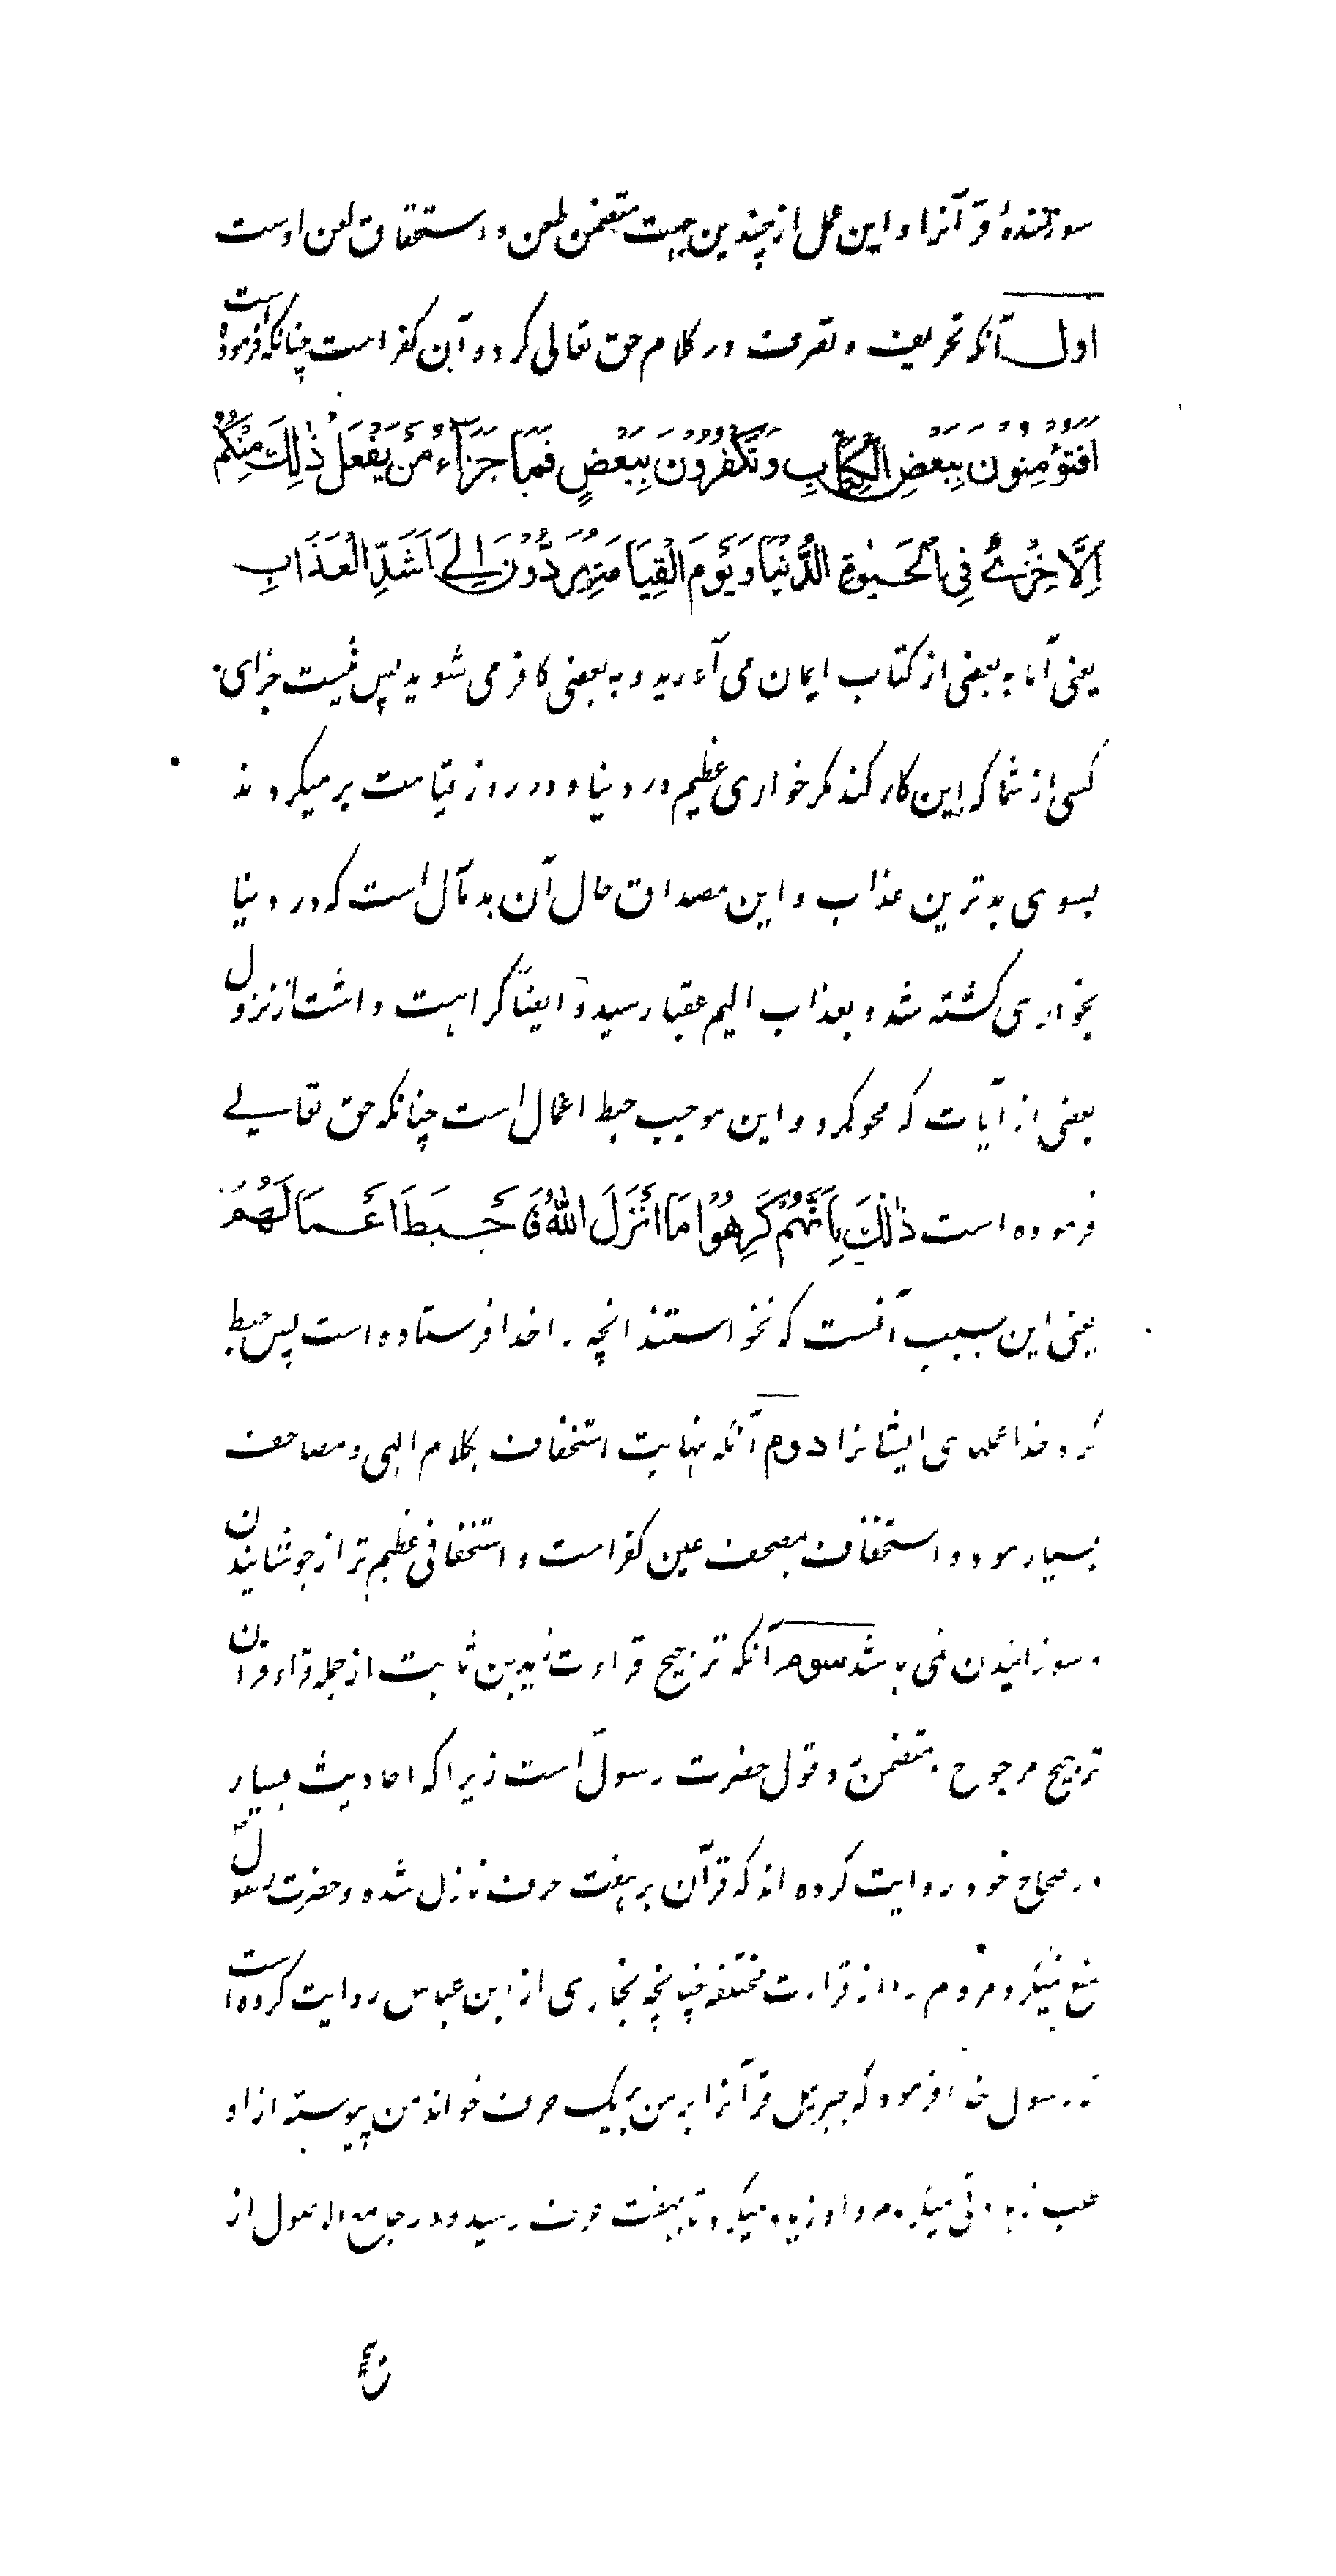 سوزنندهٔ قرآنرا و این عمل از چندین جهت متضمن طعن و استحقاق لعن اوست
اول آنکه تحریف و تصرف در کلام حق تعالی کرد و آن کفر است چنانکه فرموده است
اَفَتُؤْمِنُونَ بِبَعْضِ الْكِتَابِ وَتَكْفُرُونَ بِبَعْضٍ فَمَا جَزَآءُ مَنْ يَفْعَلُ ذٰلِكَ مِنْكُمْ
اِلَّا خِزْيٌ فِي الْحَيٰوةِ الدُّنْيَا وَيَوْمَ الْقِيَامَةِ يُرَدُّونَ اِلَى اَشَدِّ الْعَذَابِ
یعنی آیا به بعضی از کتاب ایمان می آورید و به بعضی کافر می شوید پس نیست جزای
کسی از شما که این کار کند مگر خواری عظیم در دنیا و در روز قیامت بر میگردند
بسوی بدترین عذاب و این مصداق حال آن بد مآل است که در دنیا
بخواری کشته شد و بعذاب الیم عقبا رسید و ایضاً کراهت داشت از نزول
بعضی از آیات که محو کرد و این موجب حبط اعمال است چنانکه حق تعالے
فرموده است ذٰلِكَ بِاَنَّهُمْ كَرِهُوْا مَا اَنْزَلَ اللّٰهُ فَاَحْبَطَ اَعْمَالَهُمْ
یعنی این بسبب آنست که نخواستند انچه را خدا فرستاده است پس حبط
کرد خدا عملهای ایشانرا دوم آنکه نهایت استخفاف بکلام الهی و مصاحف
بسیار نمود و استخفاف بمصحف عین کفر است و استخفافی عظیم تر از جوشانیدن
و سوزانیدن نمی باشد سوم آنکه ترجیح قراءت زید بن ثابت از جمله قراء قرآن
ترجیح مرجوح و متضمن رد قول حضرت رسول است زیرا که احادیث بسیار
در صحاح خود روایت کرده اند که قرآن بر هفت حرف نازل شده و حضرت رسول
منع نمیکرد مردم را از قراءت مختلفه چنانچه بخاری از ابن عباس روایت کرده است
که رسول خدا فرمود که جبرئیل قرآنرا بر من بریک حرف خواند من پیوسته از او
طلب زیادتی میکردم و او زیاد میکرد تا بهفت حرف رسید و در جامع الاصول از